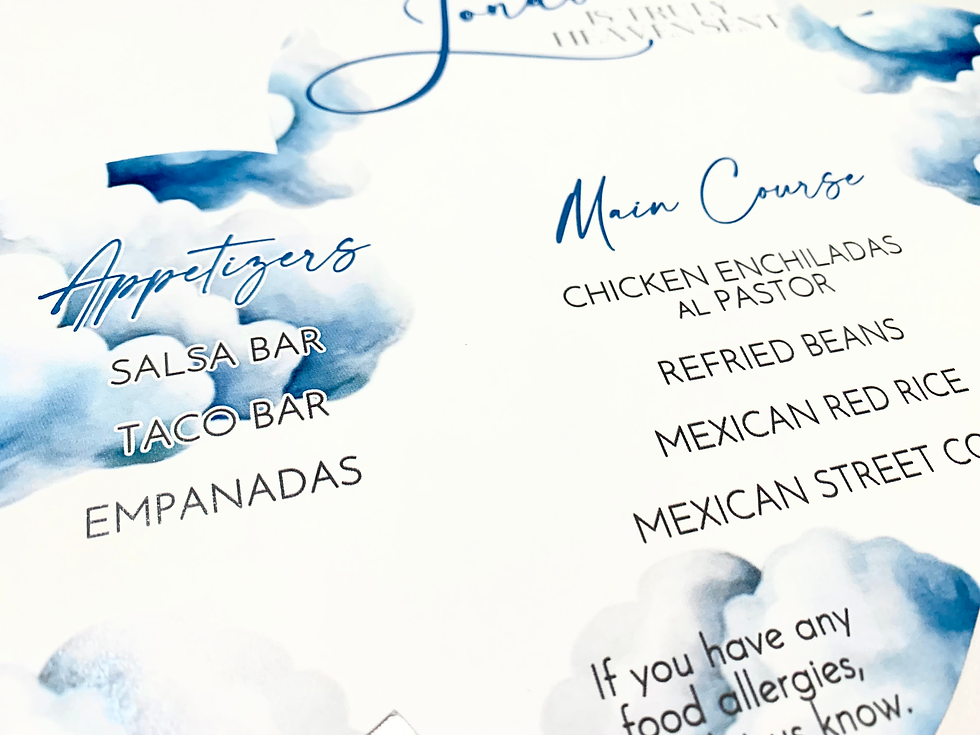 IS TRULY
HEAVEN SENT
Appetizers
SALSA BAR
TACO BAR
EMPANADAS
Main Course
CHICKEN ENCHILADAS
AL PASTOR
REFRIED BEANS
MEXICAN RED RICE
MEXICAN STREET
If you have any
food allergies,
us know.